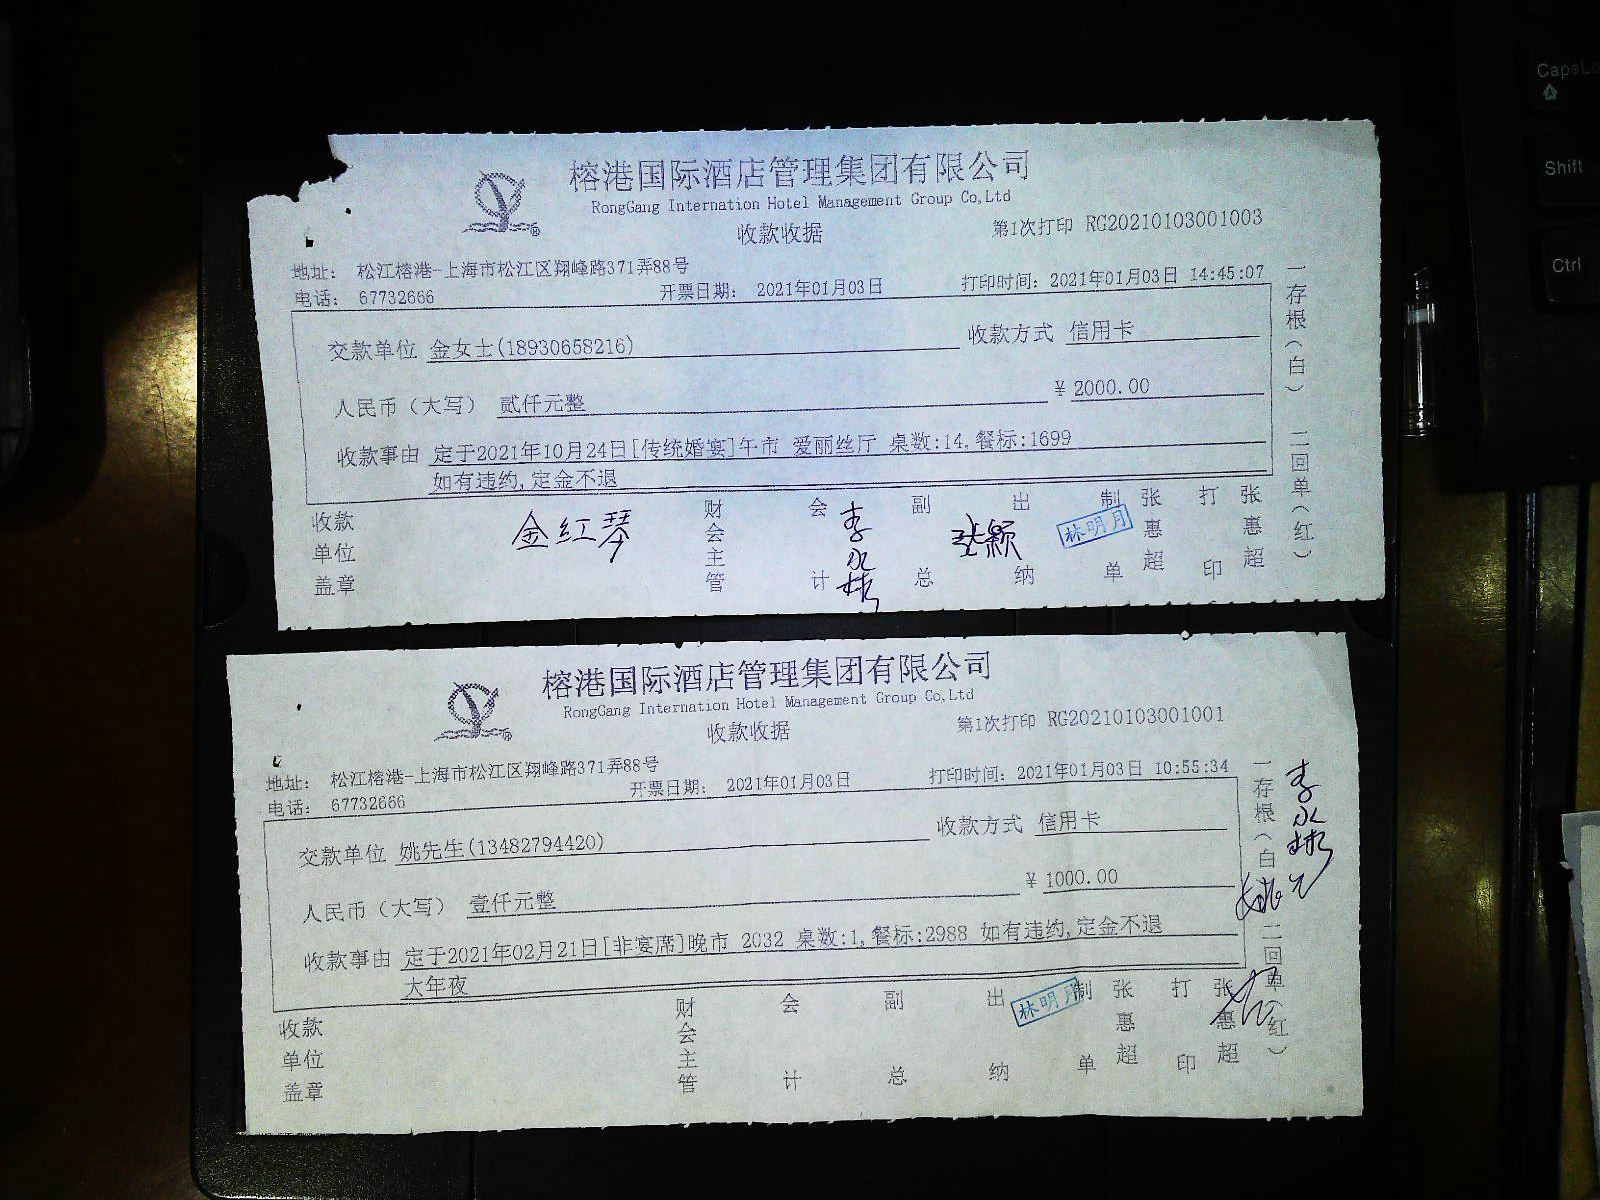 榕港国际酒店管理集团有限公司
RongGang Internation Hotel Management Group Co,Ltd
收款收据
第1次打印 RG20210103001003
地址: 松江榕港-上海市松江区翔峰路371弄88号
电话: 67732666
开票日期: 2021年01月03日
打印时间: 2021年01月03日 14:45:07
交款单位 金女士(18930658216)
收款方式 信用卡
人民币（大写） 贰仟元整
¥ 2000.00
收款事由 定于2021年10月24日[传统婚宴]午市 爱丽丝厅 桌数:14,餐标:1699
如有违约,定金不退
收款单位盖章
金红琴
财会主管
会计
李永彬
副总
张颖
出纳
林明月
制单
张惠超
打印
张惠超
一存根（白）
二回单（红）
榕港国际酒店管理集团有限公司
RongGang Internation Hotel Management Group Co,Ltd
收款收据
第1次打印 RG20210103001001
地址: 松江榕港-上海市松江区翔峰路371弄88号
电话: 67732666
开票日期: 2021年01月03日
打印时间: 2021年01月03日 10:55:34
交款单位 姚先生(13482794420)
收款方式 信用卡
人民币（大写） 壹仟元整
¥ 1000.00
收款事由 定于2021年02月21日[非宴席]晚市 2032 桌数:1,餐标:2988 如有违约,定金不退
大年夜
收款单位盖章
财会主管
会计
副总
出纳
林明月
制单
张惠超
打印
张惠超
一存根（白）
二回单（红）
李永彬
CapsLo
Shift
Ctrl